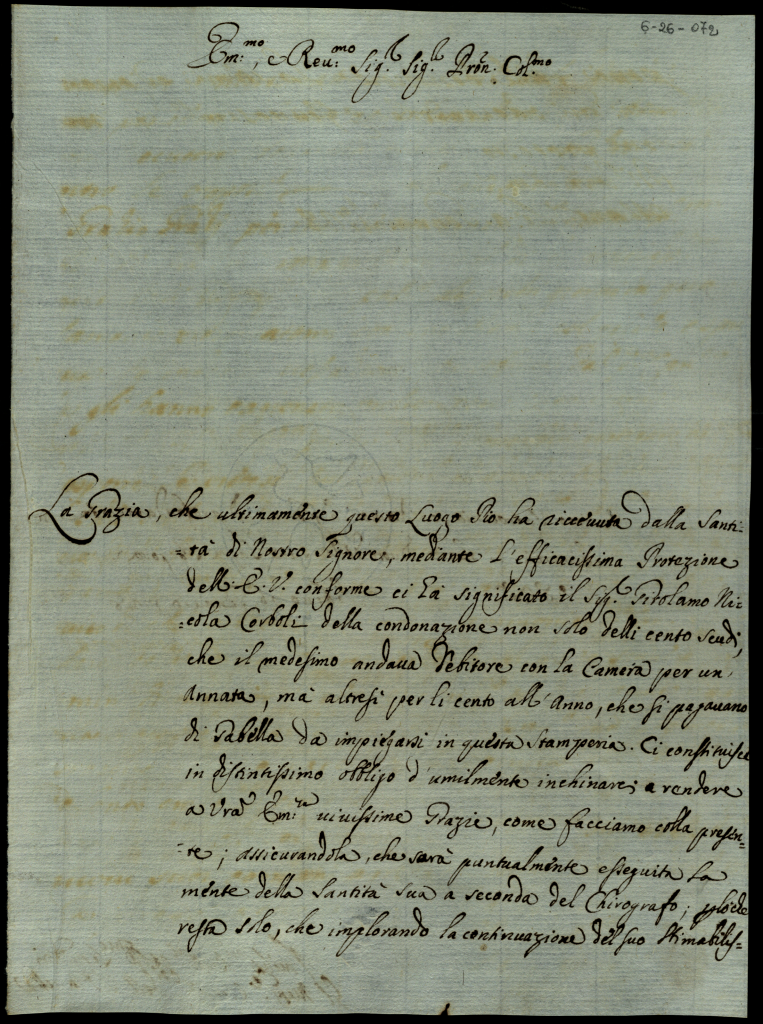 6-26-072
Em:mo, e Reu:mo Sig.r Sig.r Pron. Col.mo
La Grazia, che ultimamente questo Luogo Pio ha riceuuta dalla Santi-
=tà di Nostro Signore, mediante l'efficacissima Protezione
dell'E. V. conforme ci hà significato il Sig.r Girolamo Ni=
=cola Corboli della condonazione non solo delli cento scudi,
che il medesimo andaua debitore con la Camera per un'
Annata, mà altresì per li cento all'Anno, che si pagauano
di Gabella da impiegarsi in questa Stamperia. Ci constituisce
in distintissimo obbligo d'umilmente inchinarci a rendere
a Vra Em:za uiuissime Grazie, come facciamo colla presen=
=te; assicurandola, che sarà puntualmente esseguita la
mente della Santità Sua a seconda del Chirografo;
resta solo, che implorando la continuazione del suo stimabilis=